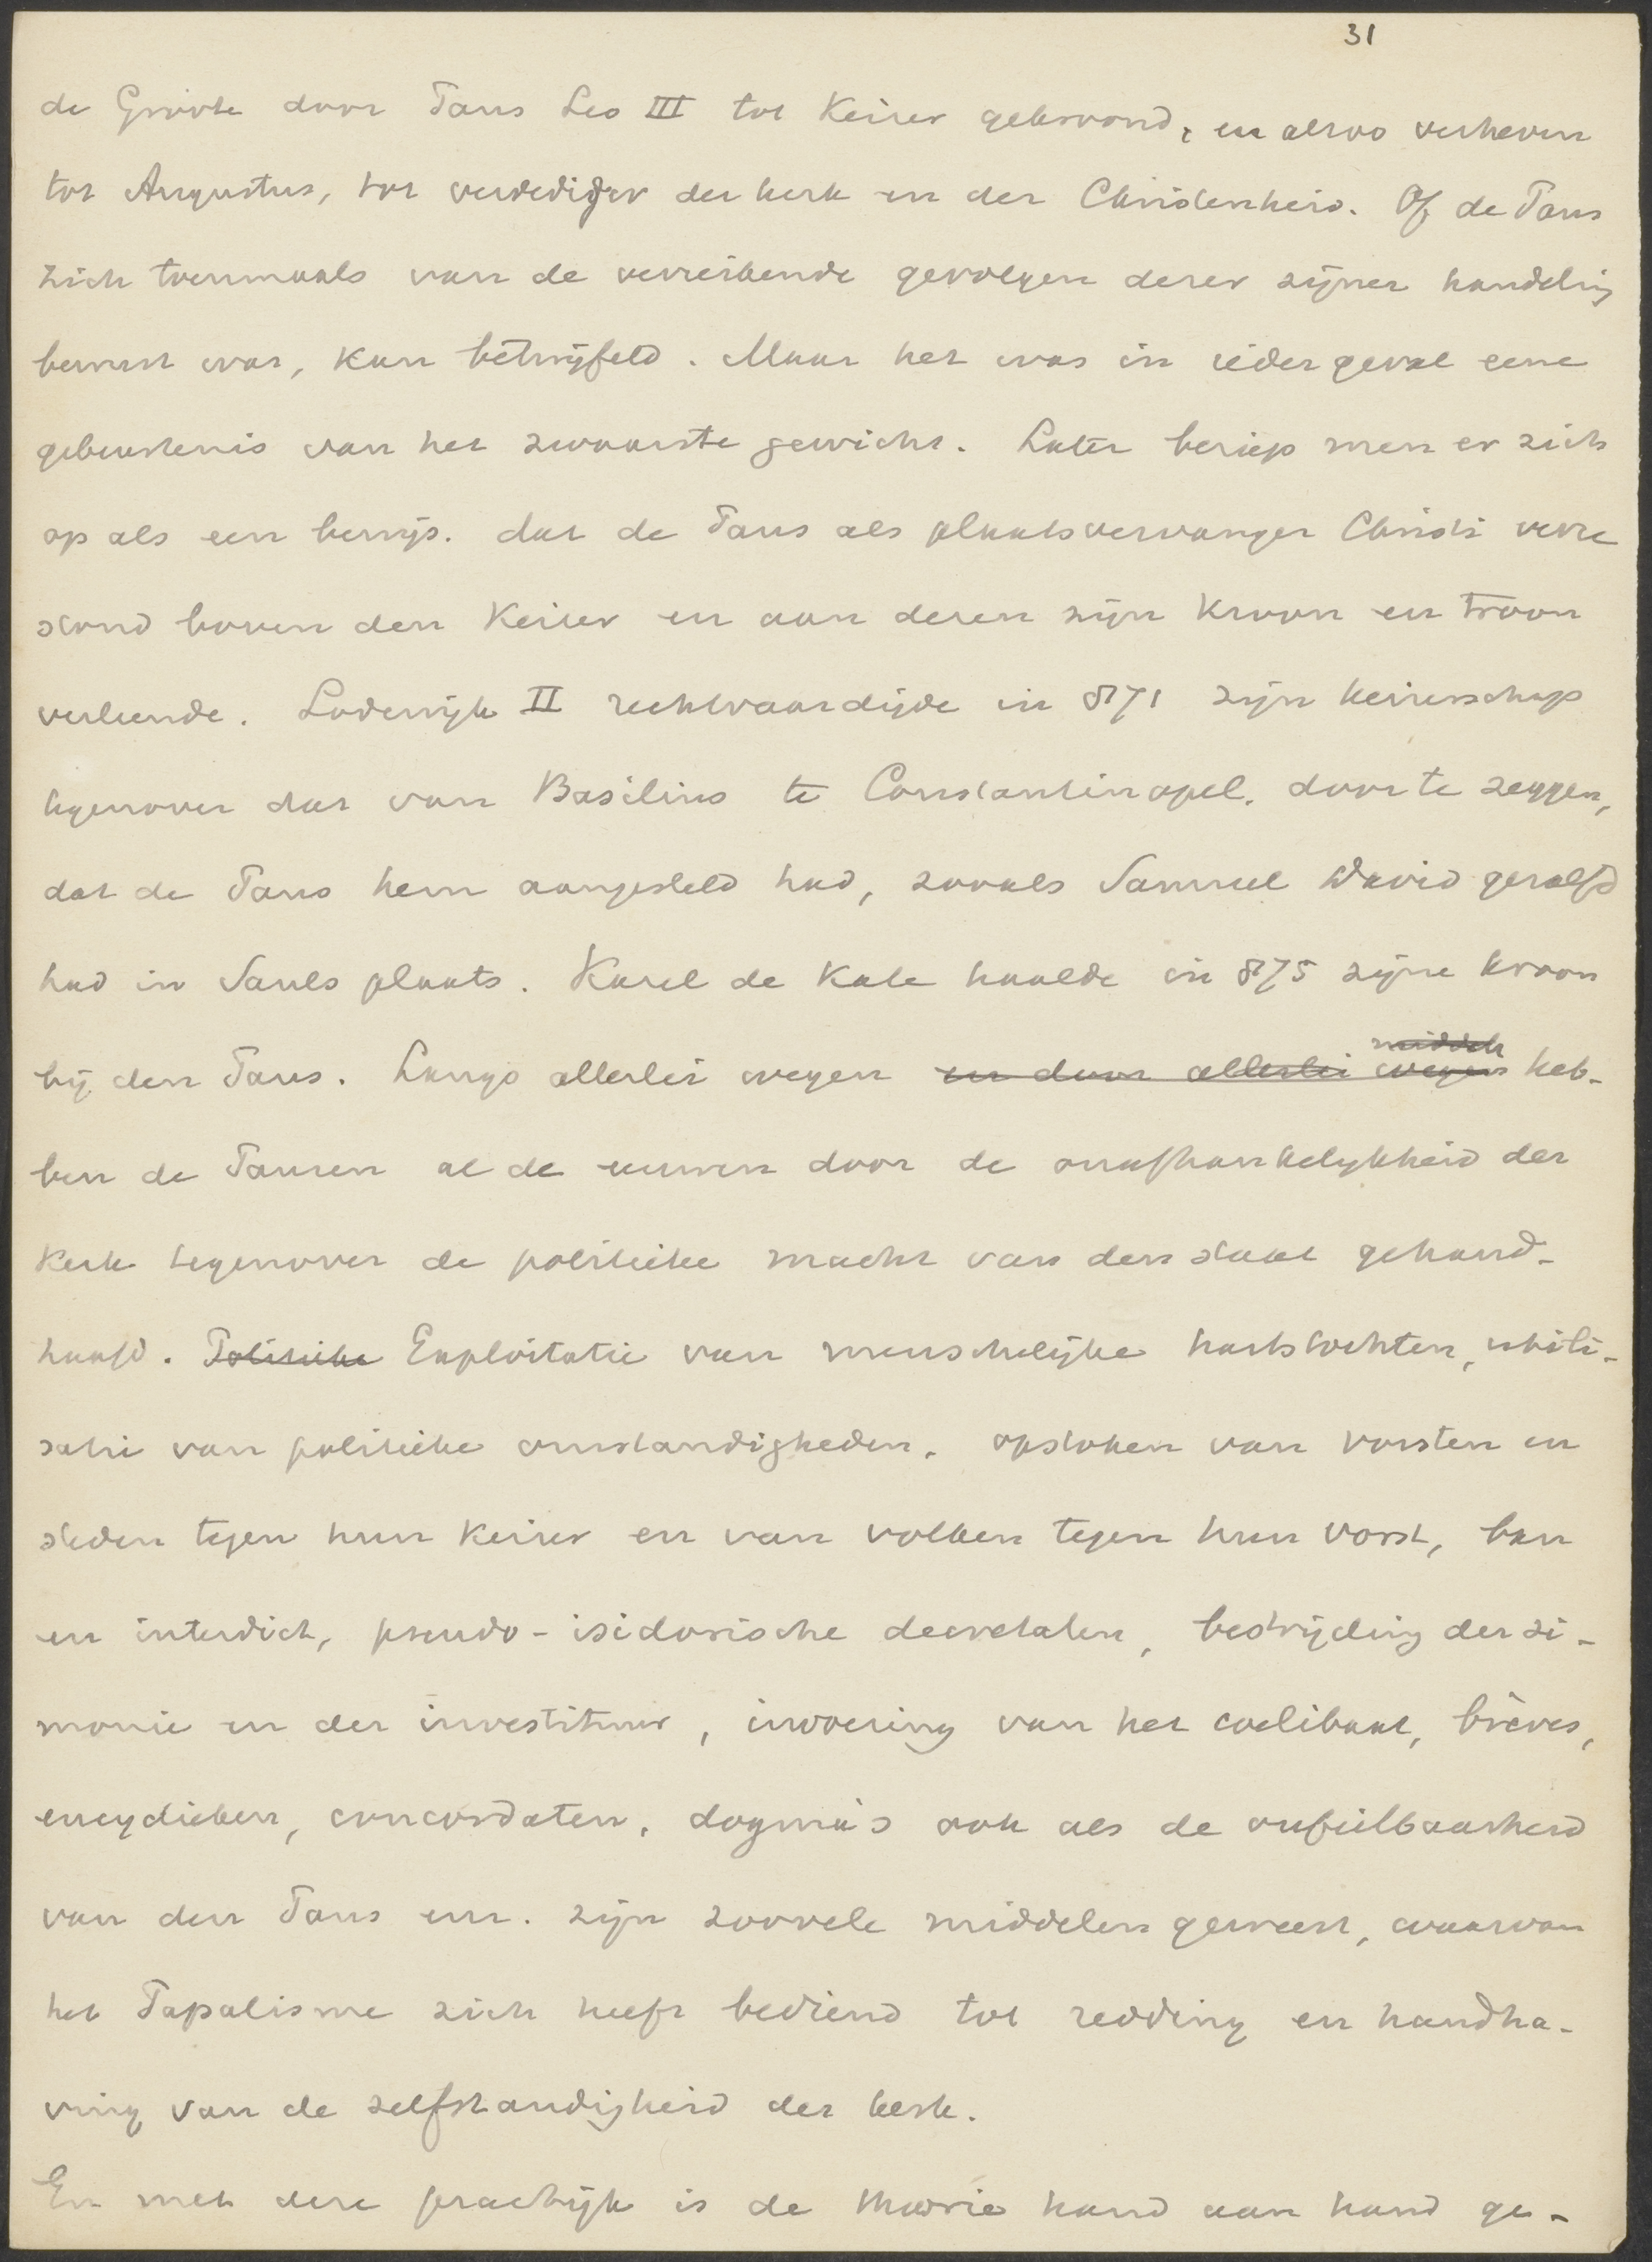 31
de Groote door Paus Leo III tot Keizer gekroond, en alzoo verheven
tot Augustus, tot verdediger der kerk en der Christenheid. Of de Paus
zich toenmaals van de verreikende gevolgen dezer zijner handeling
bewust was, kan betwijfeld. Maar het was in ieder geval eene
gebeurtenis van het zwaarste gewicht. Later beriep men er zich
op als een bewijs. dat de Paus als plaatsvervanger Christi verre
stond boven den Keizer en aan dezen zijn Kroon en troon
verleende. Lodewijk II rechtvaardigde in 871 zijn keizerschap
tegenover dat van Basilius te Constantinopel. door te zeggen,
dat de Paus hem aangesteld had, zooals Samuel David gezalfd
had in Sauls plaats. Karel de Kale haalde in 875 zijne kroon
bij den Paus. Langs allerlei wegen en door allerlei wegen middele heb-
ben de Pausen al de eeuwen door de onafhankelykheid der
Kerk tegenover de politieke macht van den staat gehand-
haafd. Politieke Exploitatie van menschelijke hartstochten, utili-
satie van politieke omstandigheden. opstoken van vorsten en
steden tegen hun Keizer en van volken tegen hun vorst, ban
en interdict, pseudo-isidorische decretalen, bestrijding der si-
monie en der investituur, invoering van het coelibaat, brèves,
encyclieken, concordaten, dogma's ook als de onfeilbaarheid
van den Paus enz. zijn zoovele middelen geweest, waarvan
het Papalisme zich heeft bediend tot redding en handha-
ving van de zelfstandigheid der kerk.
En met deze practijk is de theorie hand aan hand ge-